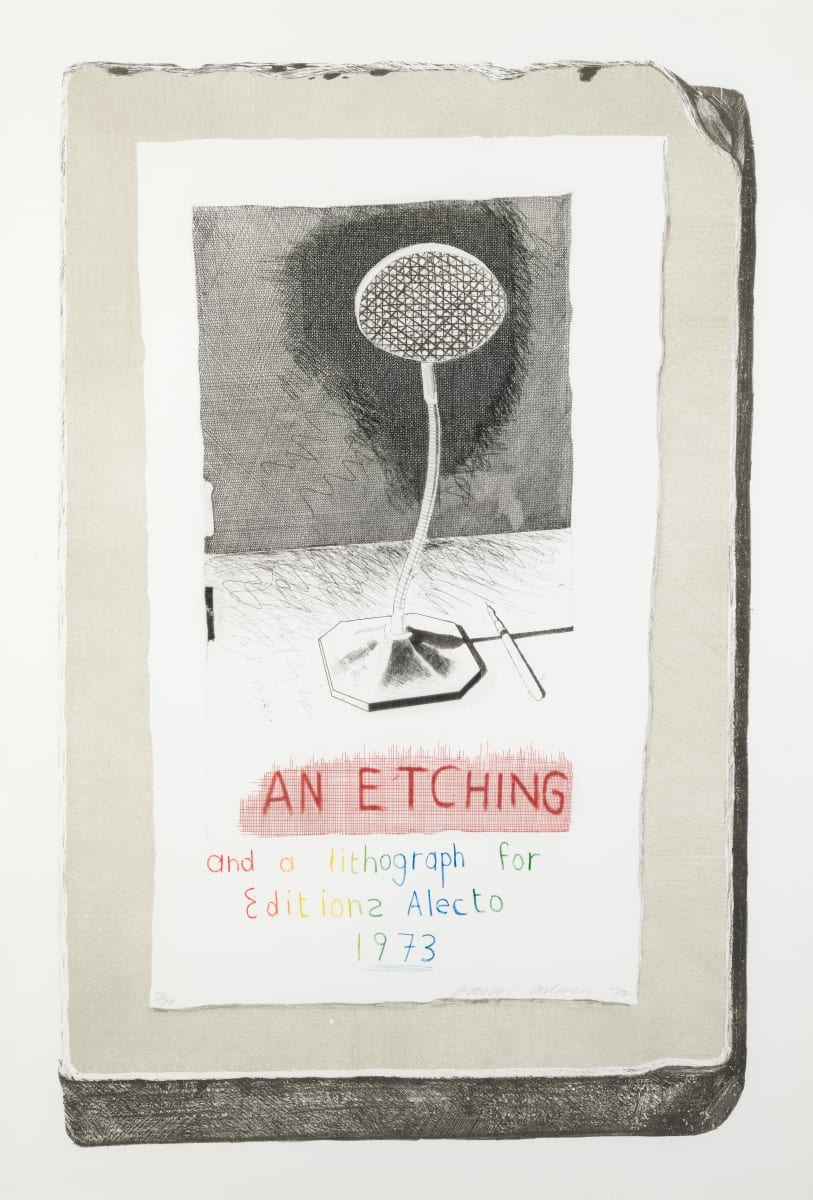 AN ETCHING
and a lithograph for
Editions Alecto
1973